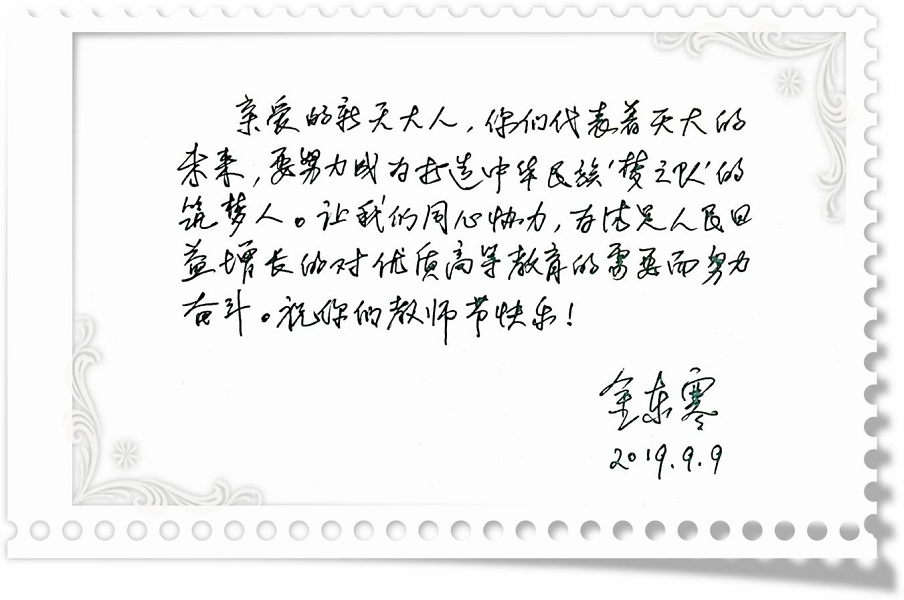 亲爱的新天大人，你们代表着天大的
未来，要努力成为打造中华民族‘梦之队’的
筑梦人。让我们同心协力，为满足人民日
益增长的对优质高等教育的需要而努力
奋斗。祝你们教师节快乐！
金东寒
2019.9.9